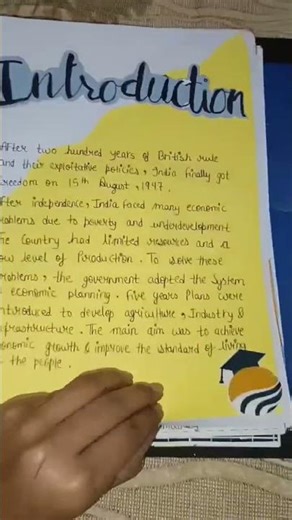 Introduction
After two hundred years of British rule
and their exploitative policies, India finally got
freedom on 15th August, 1947.
After independence, India faced many economic
problems due to poverty and underdevelopment
The Country had limited resources and a
low level of Production. To solve these
problems, the government adopted the System
of economic planning. Five years Plans were
introduced to develop agriculture, Industry &
infrastructure. The main aim was to achieve
economic growth & improve the standard of living
of the people.